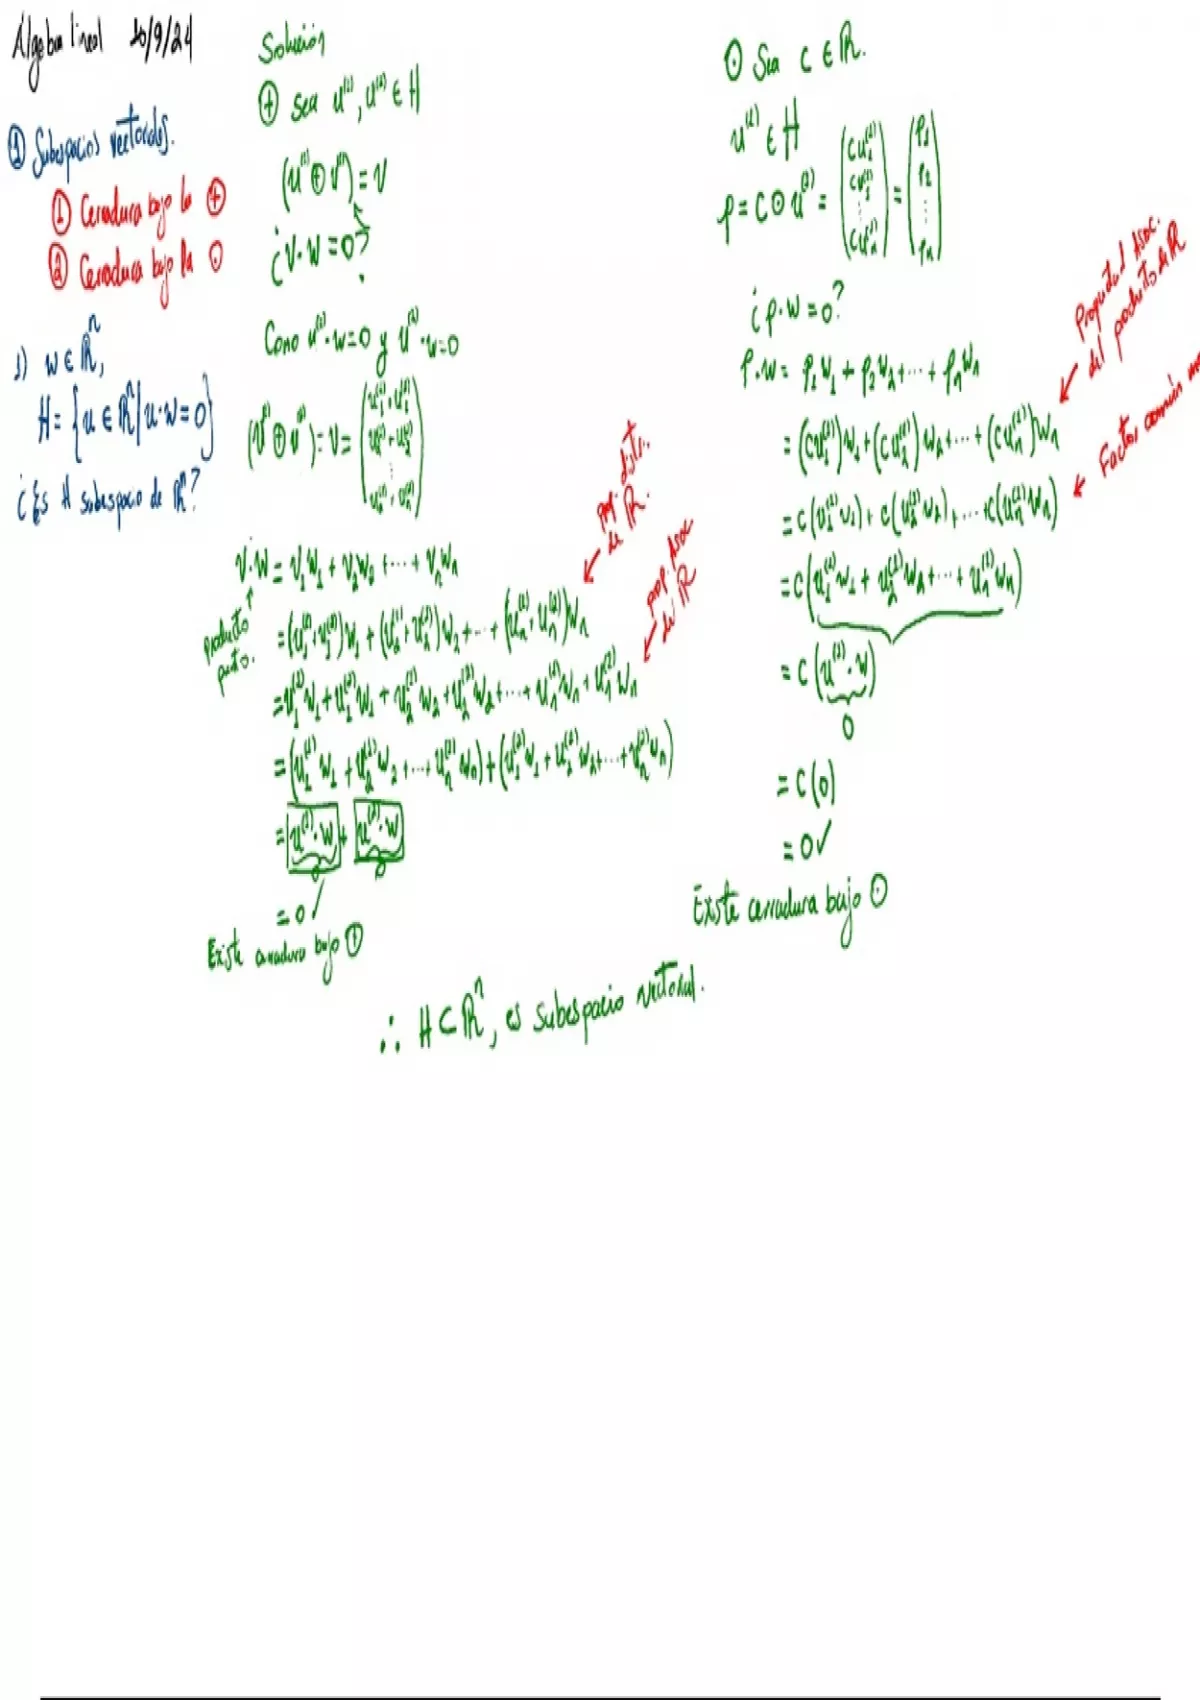 Álgebra lineal 20/9/24
① Subespacios vectoriales.
① Cerradura bajo la ⊕
② Cerradura bajo la ⊙
1) w ∈ ℝⁿ,
H = {u ∈ ℝⁿ | u·w = 0}
¿Es H subespacio de ℝⁿ?
Solución
⊕ sea u⁽¹⁾, u⁽²⁾ ∈ H
= v
¿v·w = 0?
Como u⁽¹⁾·w=0 y u⁽²⁾·w=0
= v =
v·w = v₁w₁ + v₂w₂ + ··· + vₙwₙ
producto punto.
= (u₁⁽¹⁾+u₁⁽²⁾)w₁ + (u₂⁽¹⁾+u₂⁽²⁾)w₂ + ··· + (uₙ⁽¹⁾+uₙ⁽²⁾)wₙ
prop. distr. de ℝ.
= u₁⁽¹⁾w₁ + u₁⁽²⁾w₁ + u₂⁽¹⁾w₂ + u₂⁽²⁾w₂ + ··· + uₙ⁽¹⁾wₙ + uₙ⁽²⁾wₙ
prop. Asoc de ℝ
= (u₁⁽¹⁾w₁ + u₂⁽¹⁾w₂ + ··· + uₙ⁽¹⁾wₙ) + (u₁⁽²⁾w₁ + u₂⁽²⁾w₂ + ··· + uₙ⁽²⁾wₙ)
= u⁽¹⁾·w + u⁽²⁾·w
0 0
= 0 ✓
Existe cerradura bajo ⊕
⊙ Sea c ∈ ℝ.
u⁽¹⁾ ∈ H
p = c ⊙ u⁽¹⁾ = (cu₁⁽¹⁾ cu₂⁽¹⁾ ⋮ cuₙ⁽¹⁾) = (p₁ p₂ ⋮ pₙ)
¿p·w = 0?
p·w = p₁w₁ + p₂w₂ + ··· + pₙwₙ
= (cu₁⁽¹⁾)w₁ + (cu₂⁽¹⁾)w₂ + ··· + (cuₙ⁽¹⁾)wₙ
Propiedad Asoc. del producto de ℝ
= c(u₁⁽¹⁾w₁) + c(u₂⁽¹⁾w₂) + ··· + c(uₙ⁽¹⁾wₙ)
Factor común
= c(u₁⁽¹⁾w₁ + u₂⁽¹⁾w₂ + ··· + uₙ⁽¹⁾wₙ)
= c(u⁽¹⁾·w)
0
= c(0)
= 0 ✓
Existe cerradura bajo ⊙
∴ H ⊂ ℝⁿ, es subespacio vectorial.